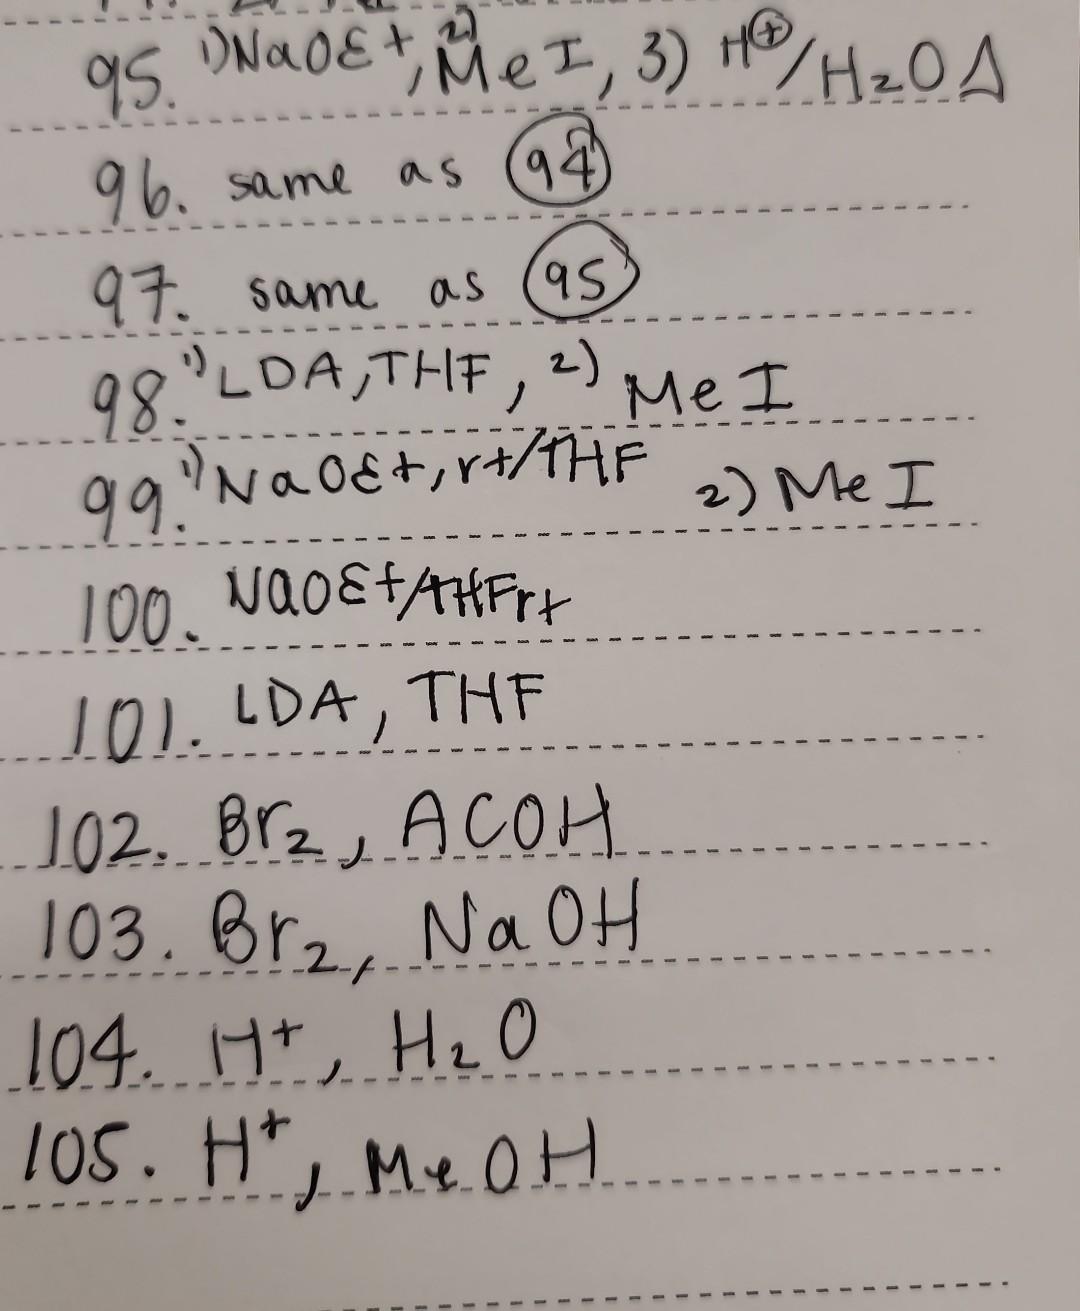 95. 1) NaOEt, 2) MeI, 3) H⊕/H2O Δ
96. same as 94
97. same as 95
98. 1) LDA, THF, 2) MeI
99. 1) NaOEt, rt/THF 2) MeI
100. NaOEt/THF rt
101. LDA, THF
102. Br2, ACOH
103. Br2, NaOH
104. H+, H2O
105. H+, MeOH